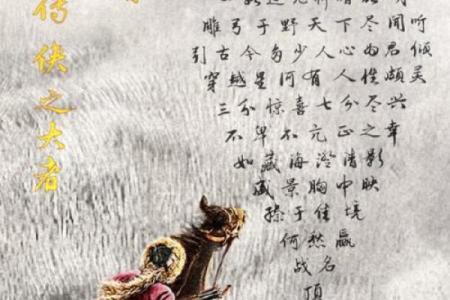 传
侠之大者
雕弓于野天下尽闻听
引古今多少人心如君倾
穿越星河有人性颇灵
三分惊喜七分尽兴
不卑不亢正之幸
如藏海澄清影
藏景胸中映
孙子佳境
何愁赢
战名
顶